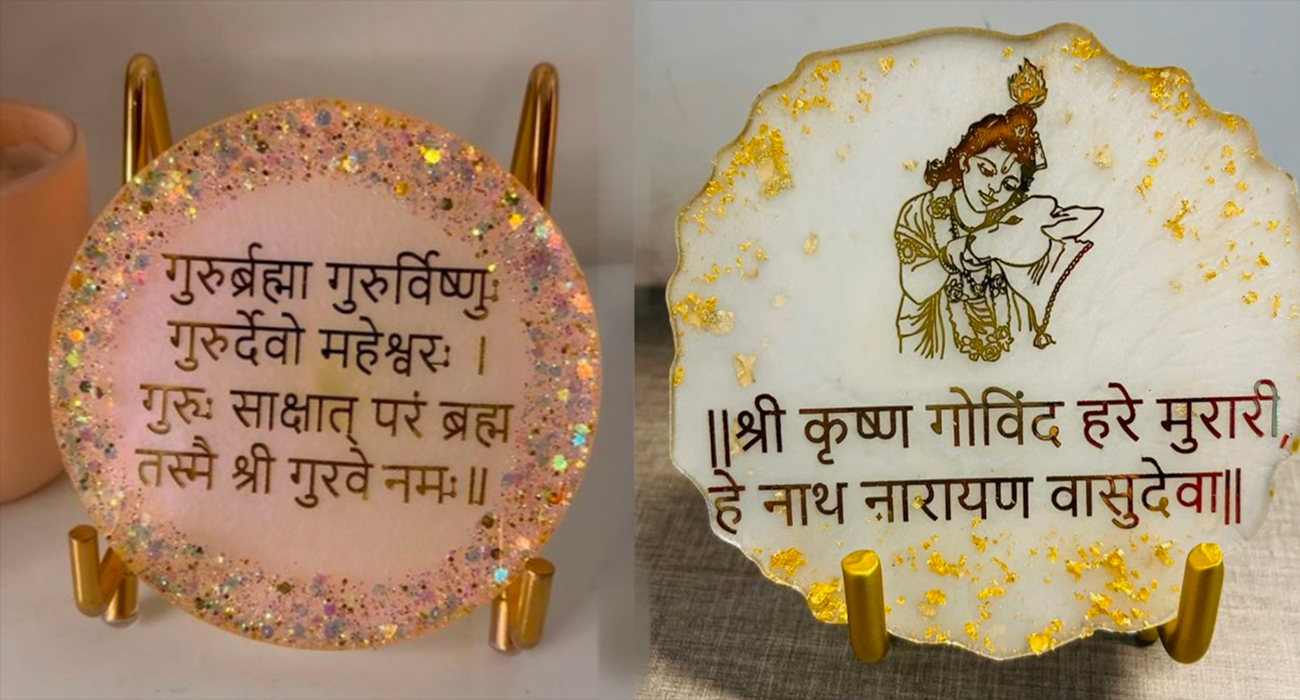 गुरुर्ब्रह्मा गुरुर्विष्णुः
गुरुर्देवो महेश्वरः ।
गुरुः साक्षात् परं ब्रह्म
तस्मै श्री गुरवे नमः॥
||श्री कृष्ण गोविंद हरे मुरारी,
हे नाथ नारायण वासुदेवा||